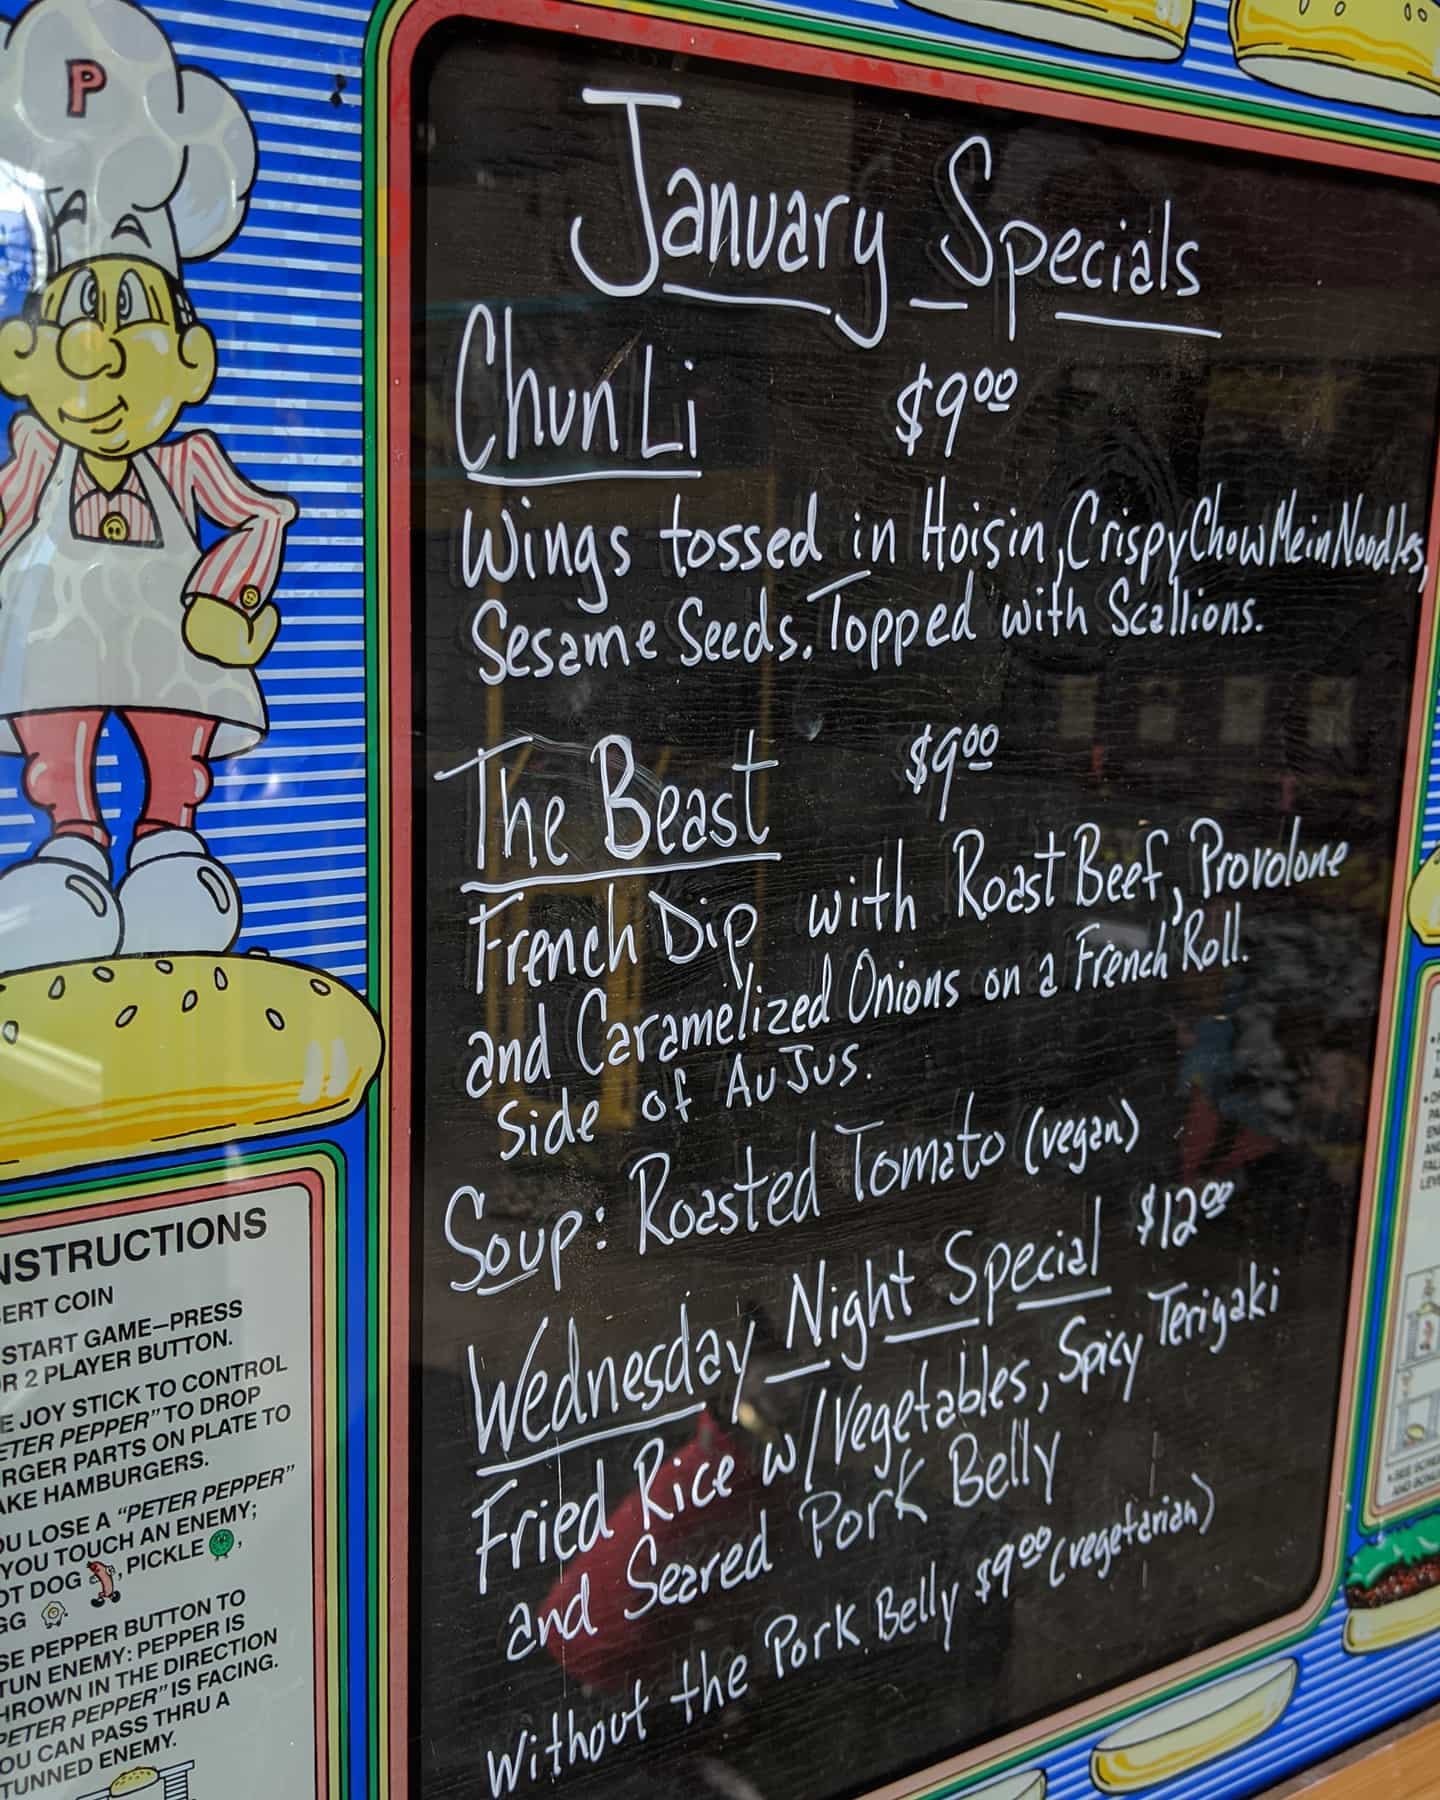 P
January Specials
Chun Li $9.00
Wings tossed in Hoisin, Crispy Chow Mein Noodles,
Sesame Seeds. Topped with Scallions.
The Beast $9.00
French Dip with Roast Beef, Provolone
and Caramelized Onions on a French Roll.
Side of Au Jus.
Soup: Roasted Tomato (vegan)
Wednesday Night Special $12.00
Fried Rice w/Vegetables, Spicy Teriyaki
and Seared Pork Belly
Without the Pork Belly $9.00 (vegetarian)
NSTRUCTIONS
ERT COIN
START GAME—PRESS
R 2 PLAYER BUTTON.
E JOY STICK TO CONTROL
ETER PEPPER" TO DROP
RGER PARTS ON PLATE TO
AKE HAMBURGERS.
OU LOSE A "PETER PEPPER"
YOU TOUCH AN ENEMY;
OT DOG , PICKLE ,
GG
SE PEPPER BUTTON TO
TUN ENEMY: PEPPER IS
HROWN IN THE DIRECTION
PETER PEPPER" IS FACING.
OU CAN PASS THRU A
TUNNED ENEMY.